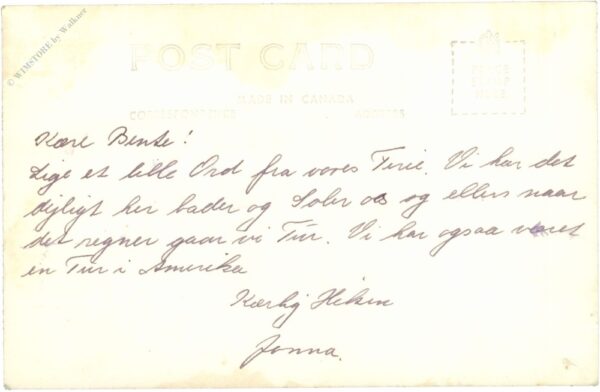 © WIMSTORE by Walkner
POST CARD
MADE IN CANADA
CORRESPONDENCE ADDRESS
PLACE
STAMP
HERE
Kære Bente!
Lige et lille Ord fra vores Ferie. Vi har det
dejligt her bader og Soler os og ellers naar
det regner gaar vi Tur. Vi har ogsaa været
en Tur i Amerika
Kærlig Hilsen
Jonna.